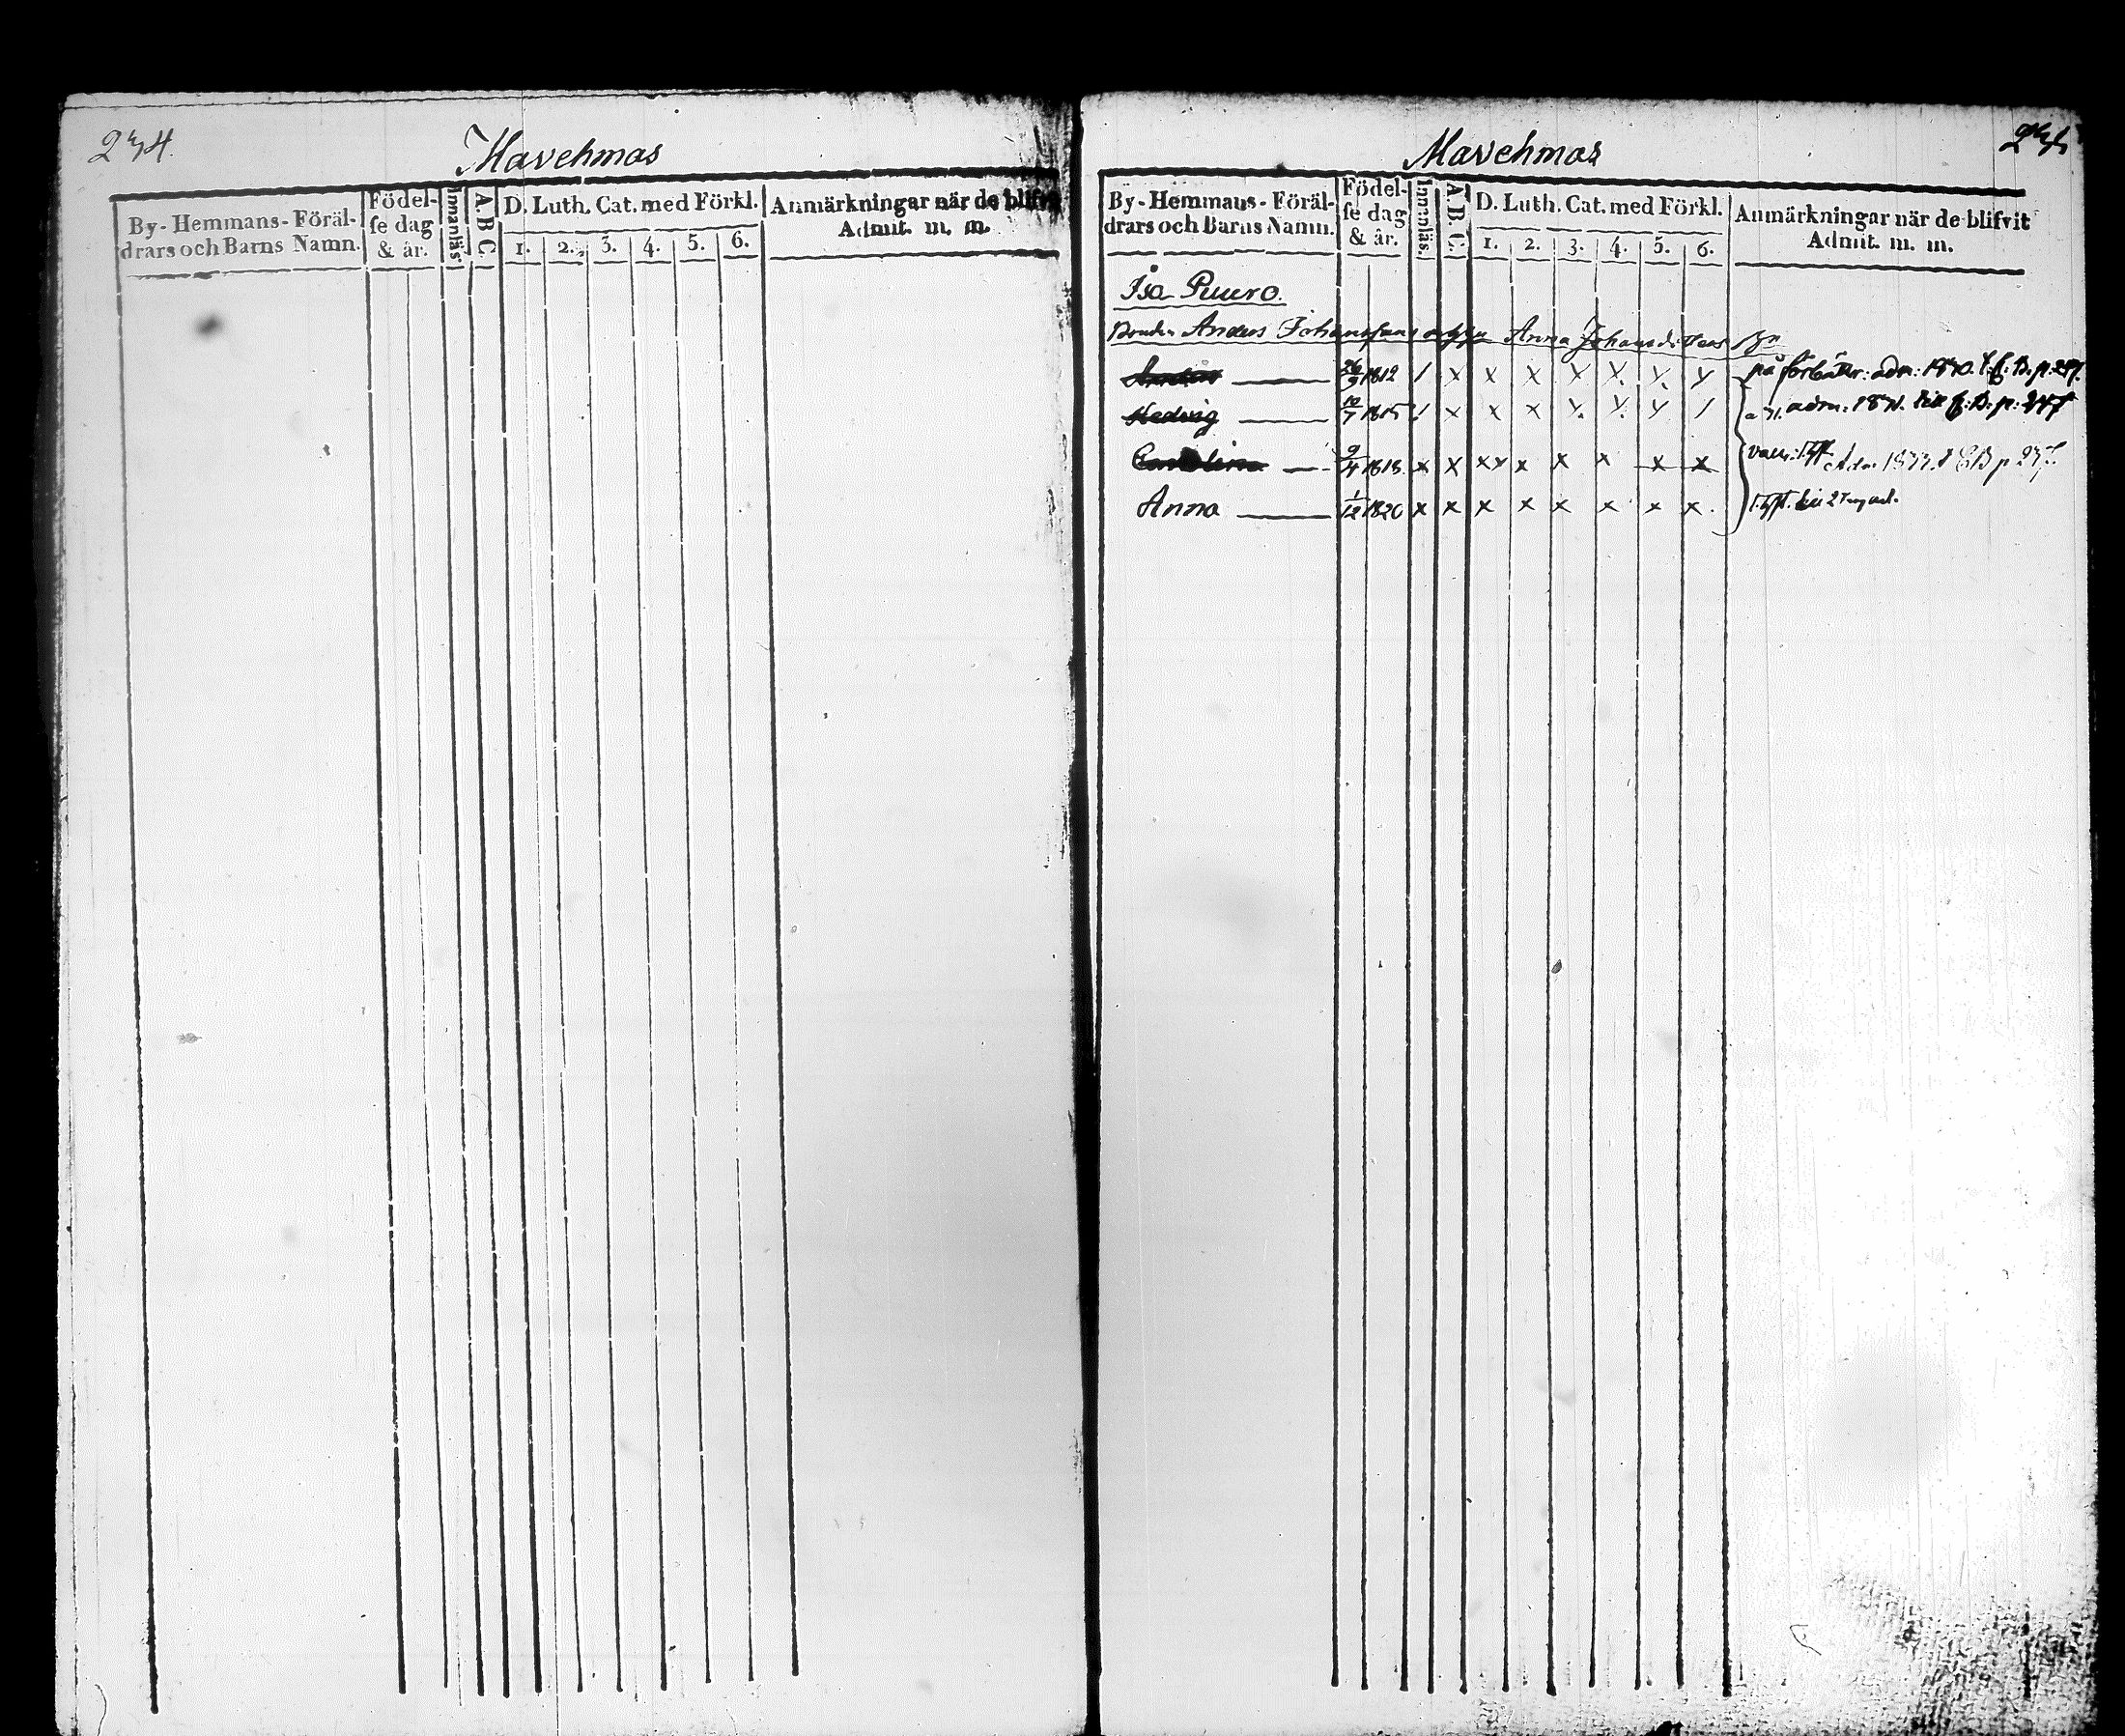 234.
Mavehmas
By- Hemmans- Föräl-
drars och Barns Namn.
Födel-
se dag
& år.
Innanläs.
A. B. C.
D. Luth. Cat. med Förkl.
1. 2. 3. 4. 5. 6.
Anmärkningar när de blifvit
Admit. m. m.
Mavehmas
By- Hemmans- Föräl-
drars och Barns Namn.
Födel-
se dag
& år.
Innanläs.
A. B. C.
D. Luth. Cat. med Förkl.
1. 2. 3. 4. 5. 6.
Anmärkningar när de blifvit
Admit. m. m.
Iso Puuro.
Anders Johansson Anna Johansdotters
Anders 26/9 1812 / x x x x x x x adm: 1830.
Hedvig 10/7 1815 / x x x x x x / adm: 1831. till
Carolina 9/4 1818 x x x x x x x x x Adm 1833.
Anna 1/12 1820 x x x x x x x x.